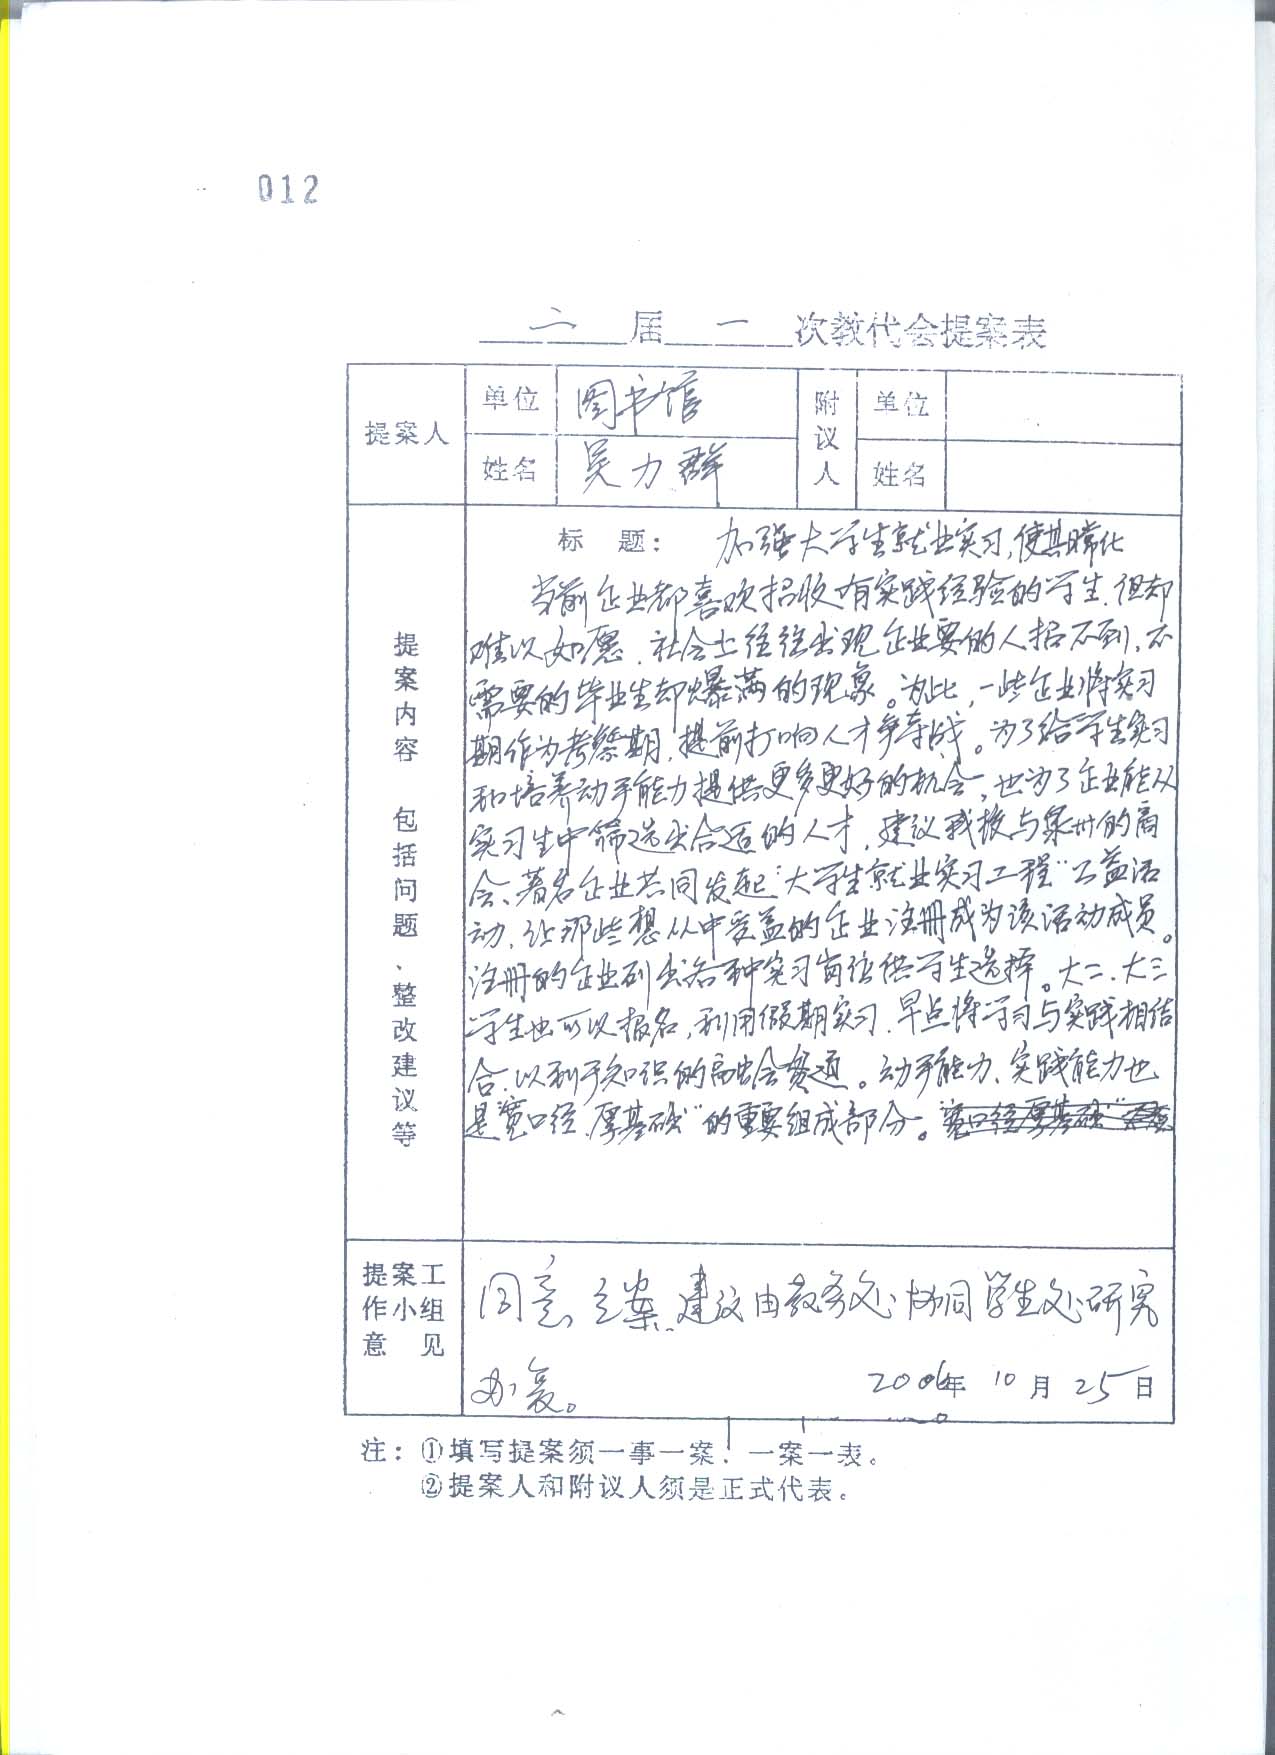 012
六 届 一 次教代会提案表
提案人 单位 图书馆 附议人 单位
姓名 吴力群 姓名
标 题： 加强大学生就业实习,使其常化
提案内容 包括问题、整改建议等
当前企业都喜欢招收有实践经验的学生,但却
难以如愿,社会上往往出现企业要的人招不到,不
需要的毕业生却爆满的现象。为此,一些企业将实习
期作为考察期,提前打响人才争夺战。为了给学生实习
和培养动手能力提供更多更好的机会,也为了企业能从
实习生中筛选出合适的人才,建议我校与泉州的商
会、著名企业共同发起"大学生就业实习工程"公益活
动,让那些想从中受益的企业注册成为该活动成员。
注册的企业列出各种实习岗位供学生选择。大二、大三
学生也可以报名,利用假期实习,早点将学习与实践相结
合,以利于知识的融会贯通。动手能力、实践能力也
是"宽口径,厚基础"的重要组成部分。"宽口径厚基础"
提案工作小组意见
同意立案,建议由教务处协同学生处研究
办复。
2006年 10月 25日
注：①填写提案须一事一案，一案一表。
②提案人和附议人须是正式代表。